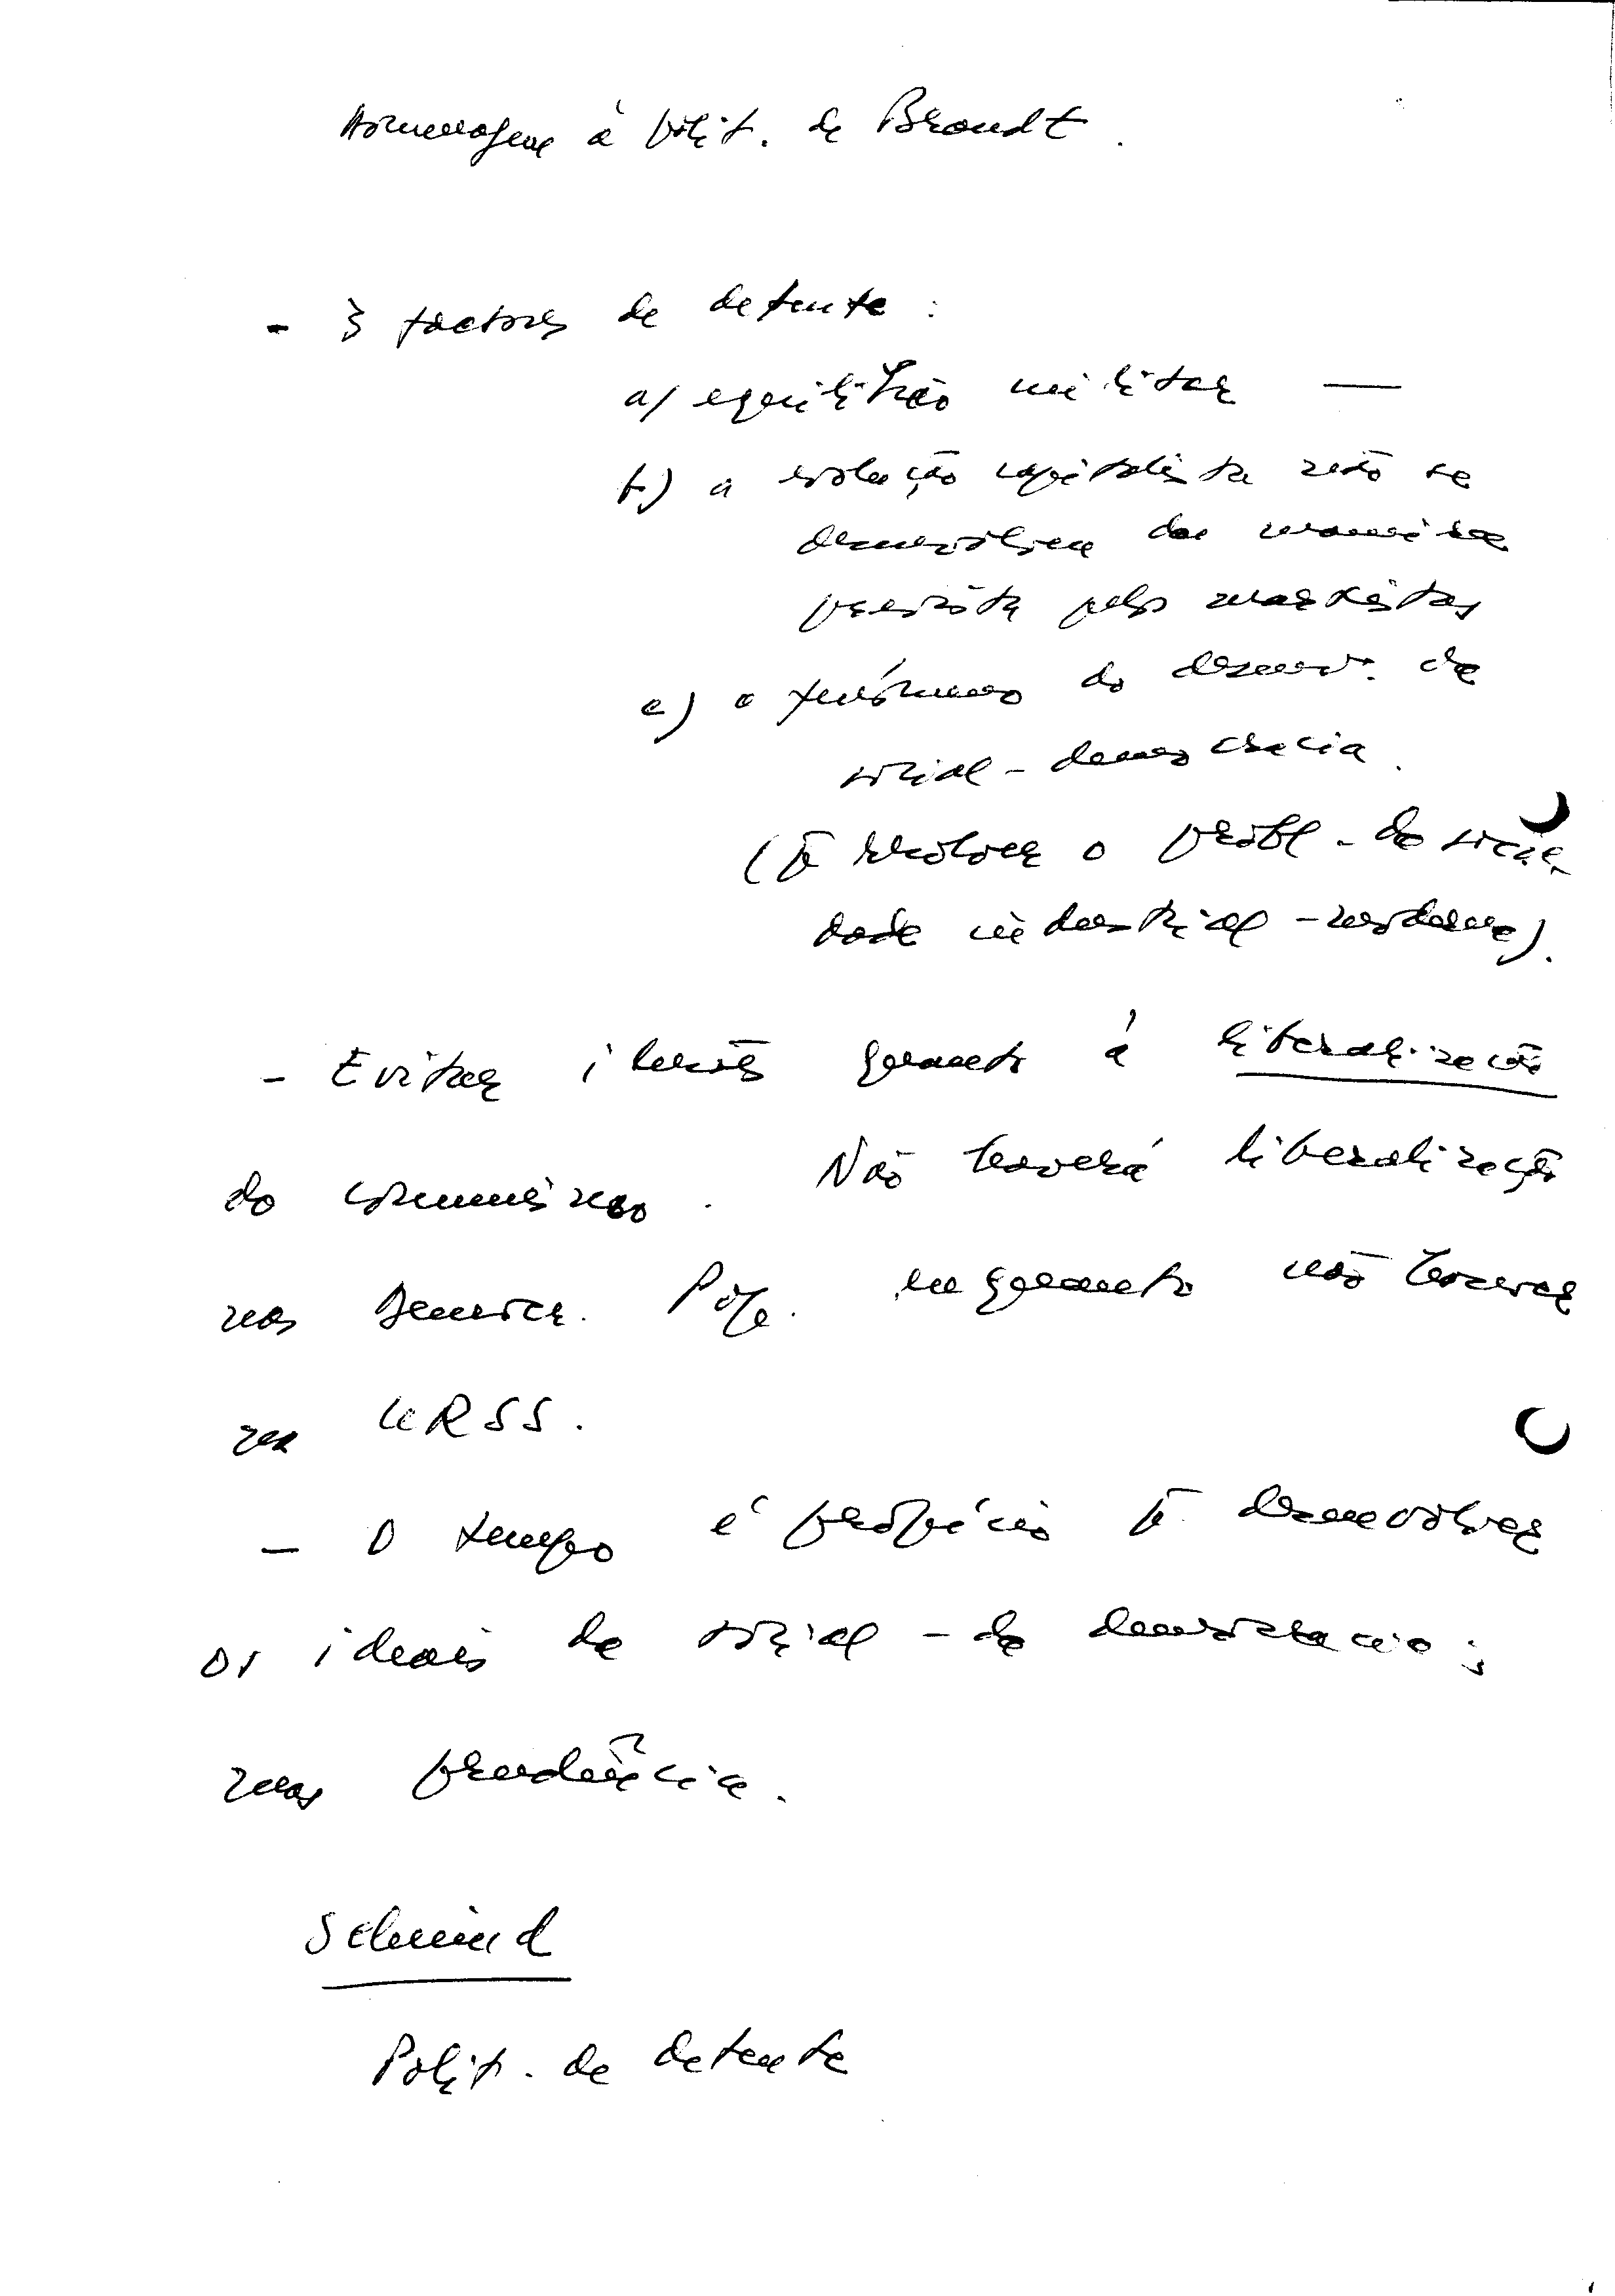 Homenagem à polít. de Brandt.
- 3 factores de detente :
a) equilíbrio militar —
b) a evolução capitalista não se
desenvolveu da maneira
prevista pelos marxistas
c) o fenómeno do desenv. da
social-democracia.
(p resolver o probl. da socie-
dade industrial-moderna).
- Evitar ilusões quanto à liberalização
do comunismo. Não haverá liberalização
nas democr. Pop. enquanto não houver
na URSS.
- O tempo é propício p. desenvolver
os ideais da social-da democracia;
mas prudência.
Schmid
Polit. de detente